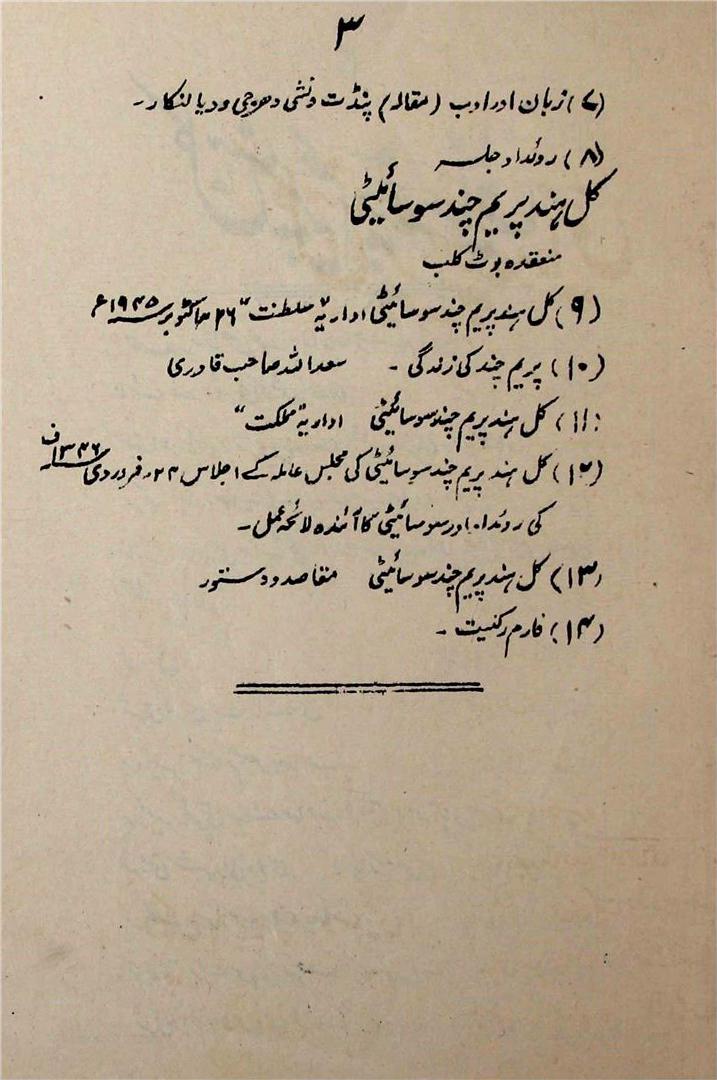 ۳
(۷) زبان اور ادب (مقالہ) پنڈت ونشی دھرجی ودیا لنکار۔
(۸) روئداد جلسہ
کل ہند پریم چند سوسائیٹی
منعقدہ بوٹ کلب
(۹) کل ہند پریم چند سوسائیٹی اداریہ "سلطنت" ۲۶ اکتوبر ۱۹۴۵ء
(۱۰) پریم چند کی زندگی ۔ سعد اللہ صاحب قادری
(۱۱) کل ہند پریم چند سوسائیٹی اداریہ "مملکت"
(۱۲) کل ہند پریم چند سوسائیٹی کی مجلس عاملہ کے اجلاس ۲۴ فروردی ف
کی روئداد اور سوسائیٹی کا آئندہ لائحہ عمل ۔
(۱۳) کل ہند پریم چند سوسائیٹی مقاصد و دستور
(۱۴) فارم رکنیت ۔